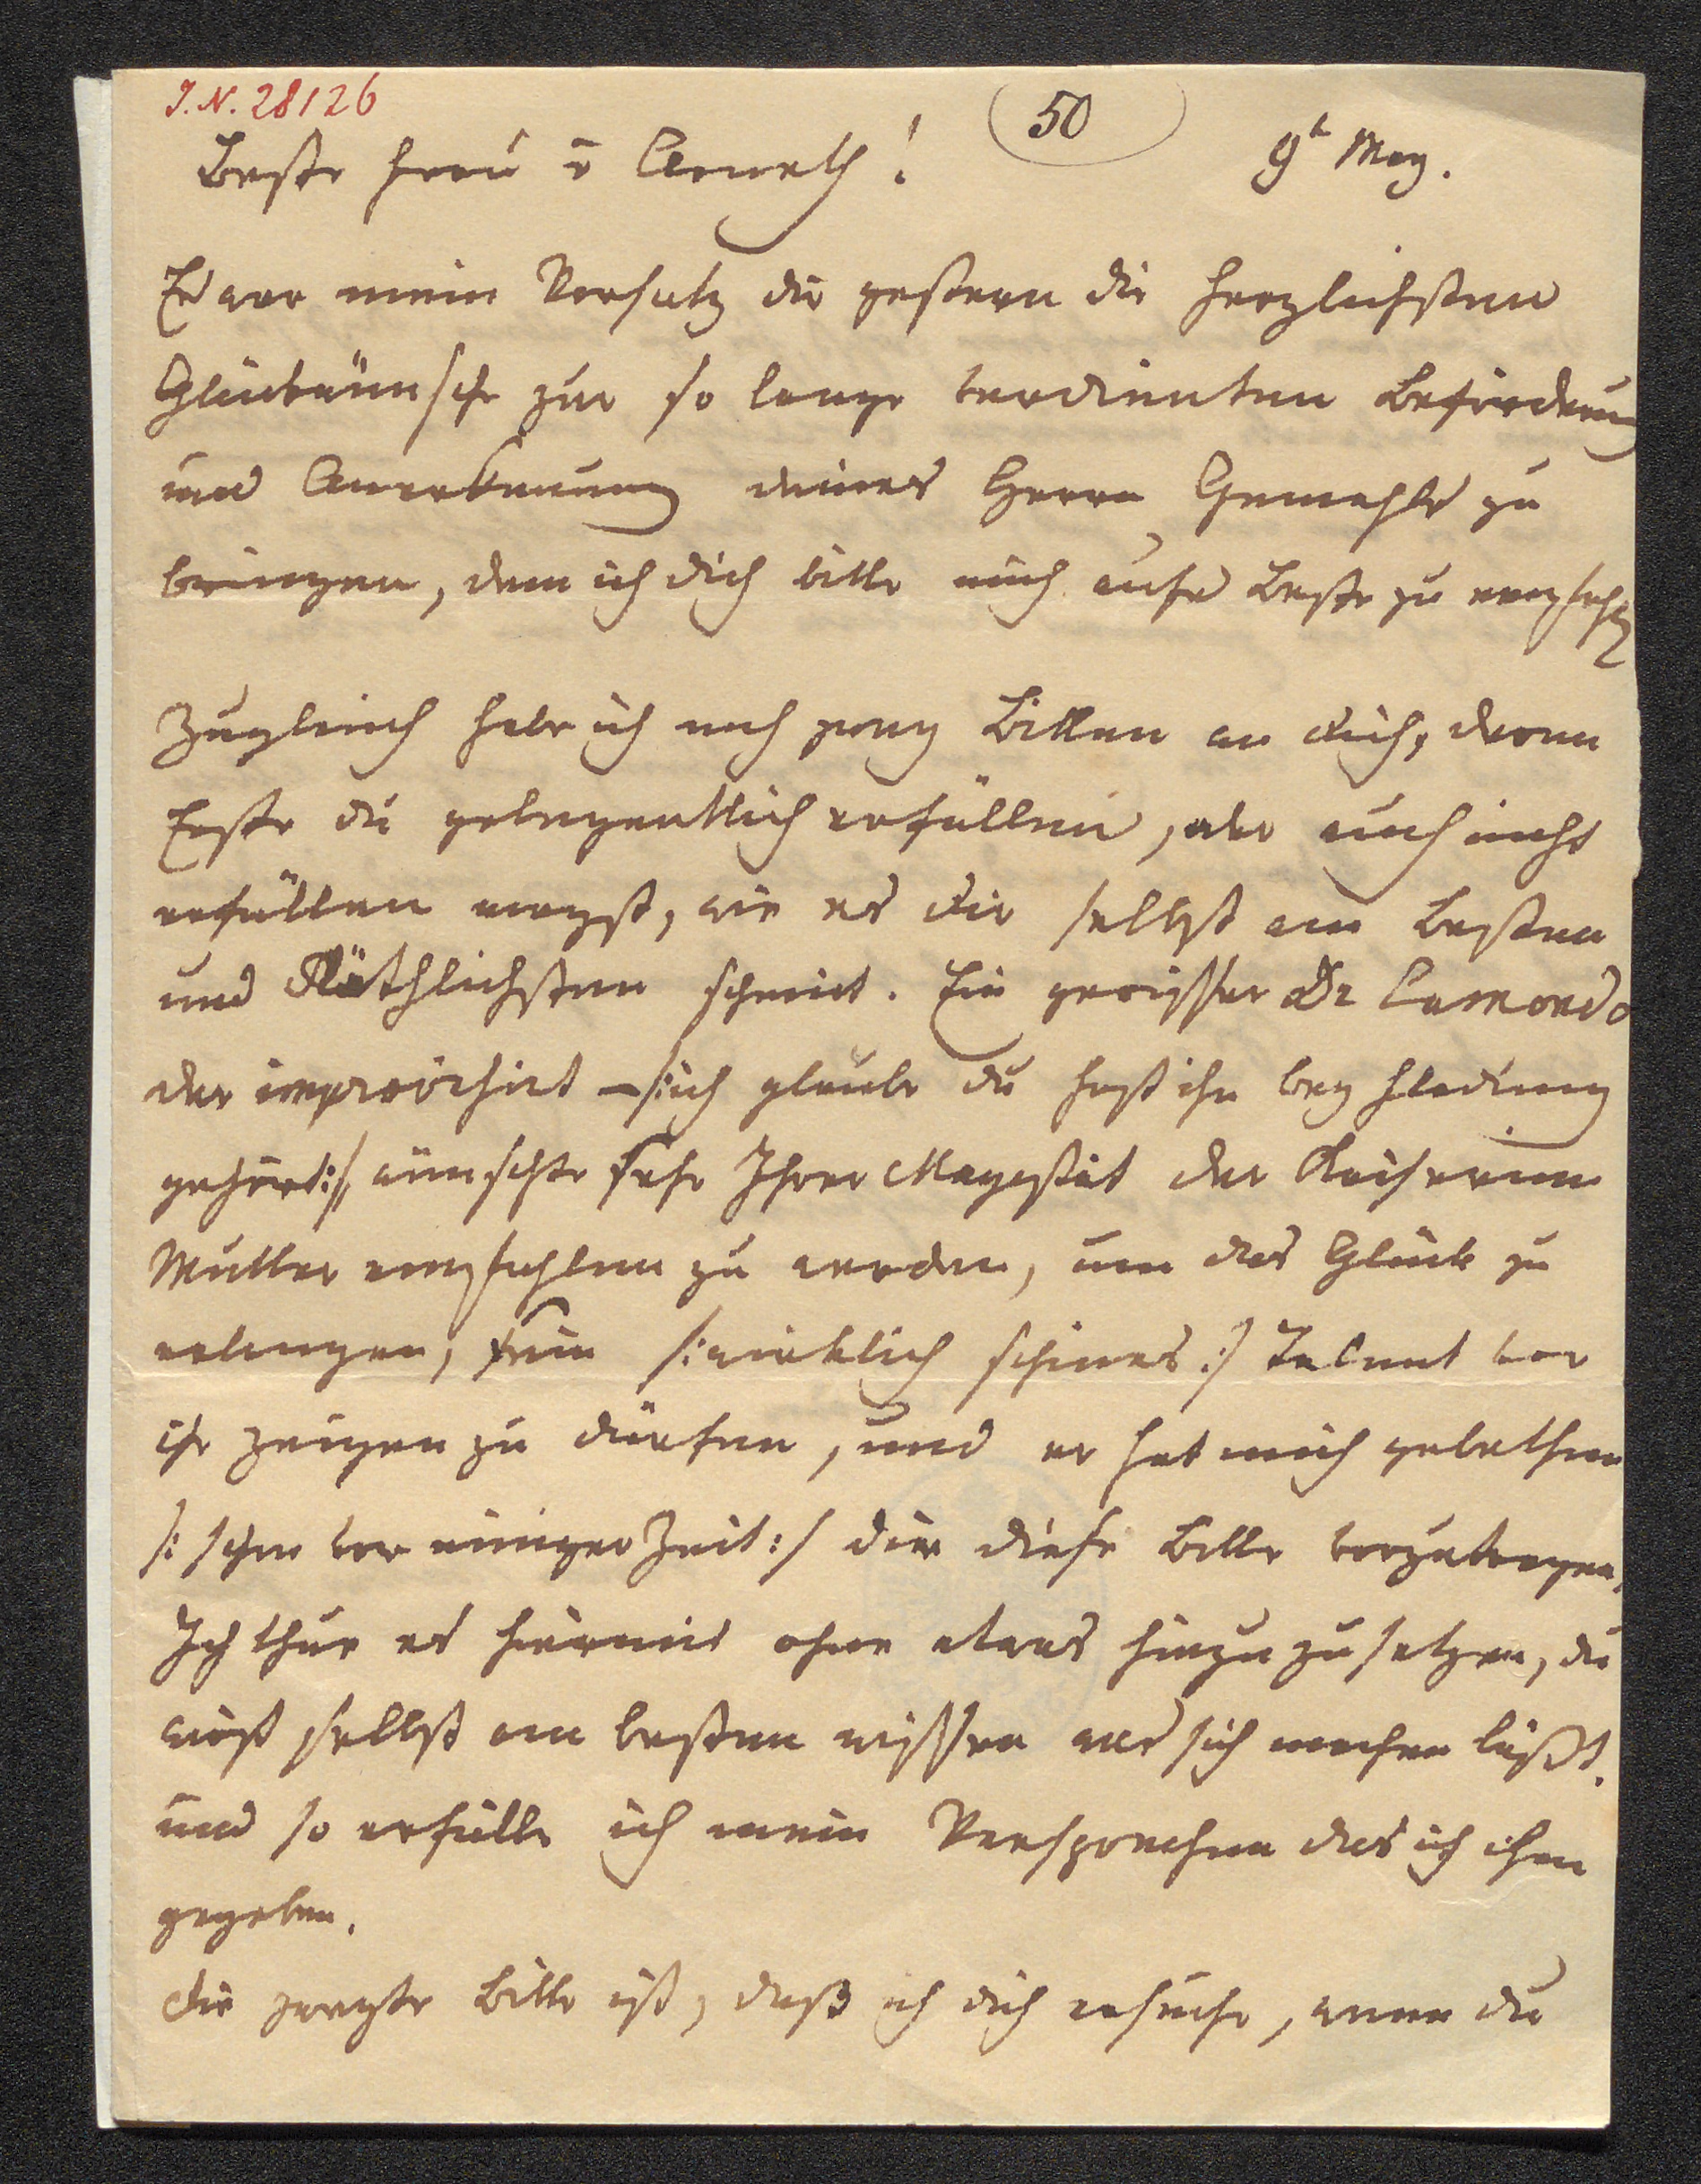 J.N. 28126
50
9t May.
Beste Frau v Arneth!
Es war mein Vorsatz dir gestern die herzlichsten
Glückwünsche zur so lange verdienten Beförderung
und Anerkennung deines Herrn Gemahls zu
bringen, dem ich dich bitte mich aufs Beste zu empfehlen
Zugleich habe ich noch zwey Bitten an dich, deren
Erste du gelegentlich erfüllen, oder auch nicht
erfüllen magst, wie es dir selbst am Besten
und Räthlichsten scheint. Ein gewisser Dr
der improvisirt – /:ich glaube du hast ihn bey
gehört:/, wünschte sehr Ihrer Mayestät der Kaiserinn
Mutter empfohlen zu werden, um das Glück zu
erlangen, sein /:wirklich schönes:/ Talent vor
ihr zeigen zu dürfen, und er hat mich gebethen
/:schon vor einiger Zeit:/ dir diese Bitte vorzutragen,
Ich thue es hiermit ohne etwas hinzuzusetzen, du
wirst selbst am besten wissen was sich machen läßt.
und so erfülle ich mein Versprechen das ich ihm
gegeben.
Die zweyte Bitte ist, daß ich dich ersuche, wenn du